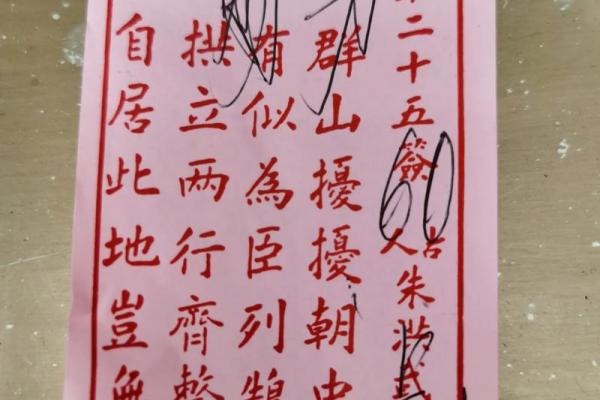 二十五簽 古人朱洪武
群山擾擾朝中
有似為臣列鵠
拱立两行齊整
自居此地豈無